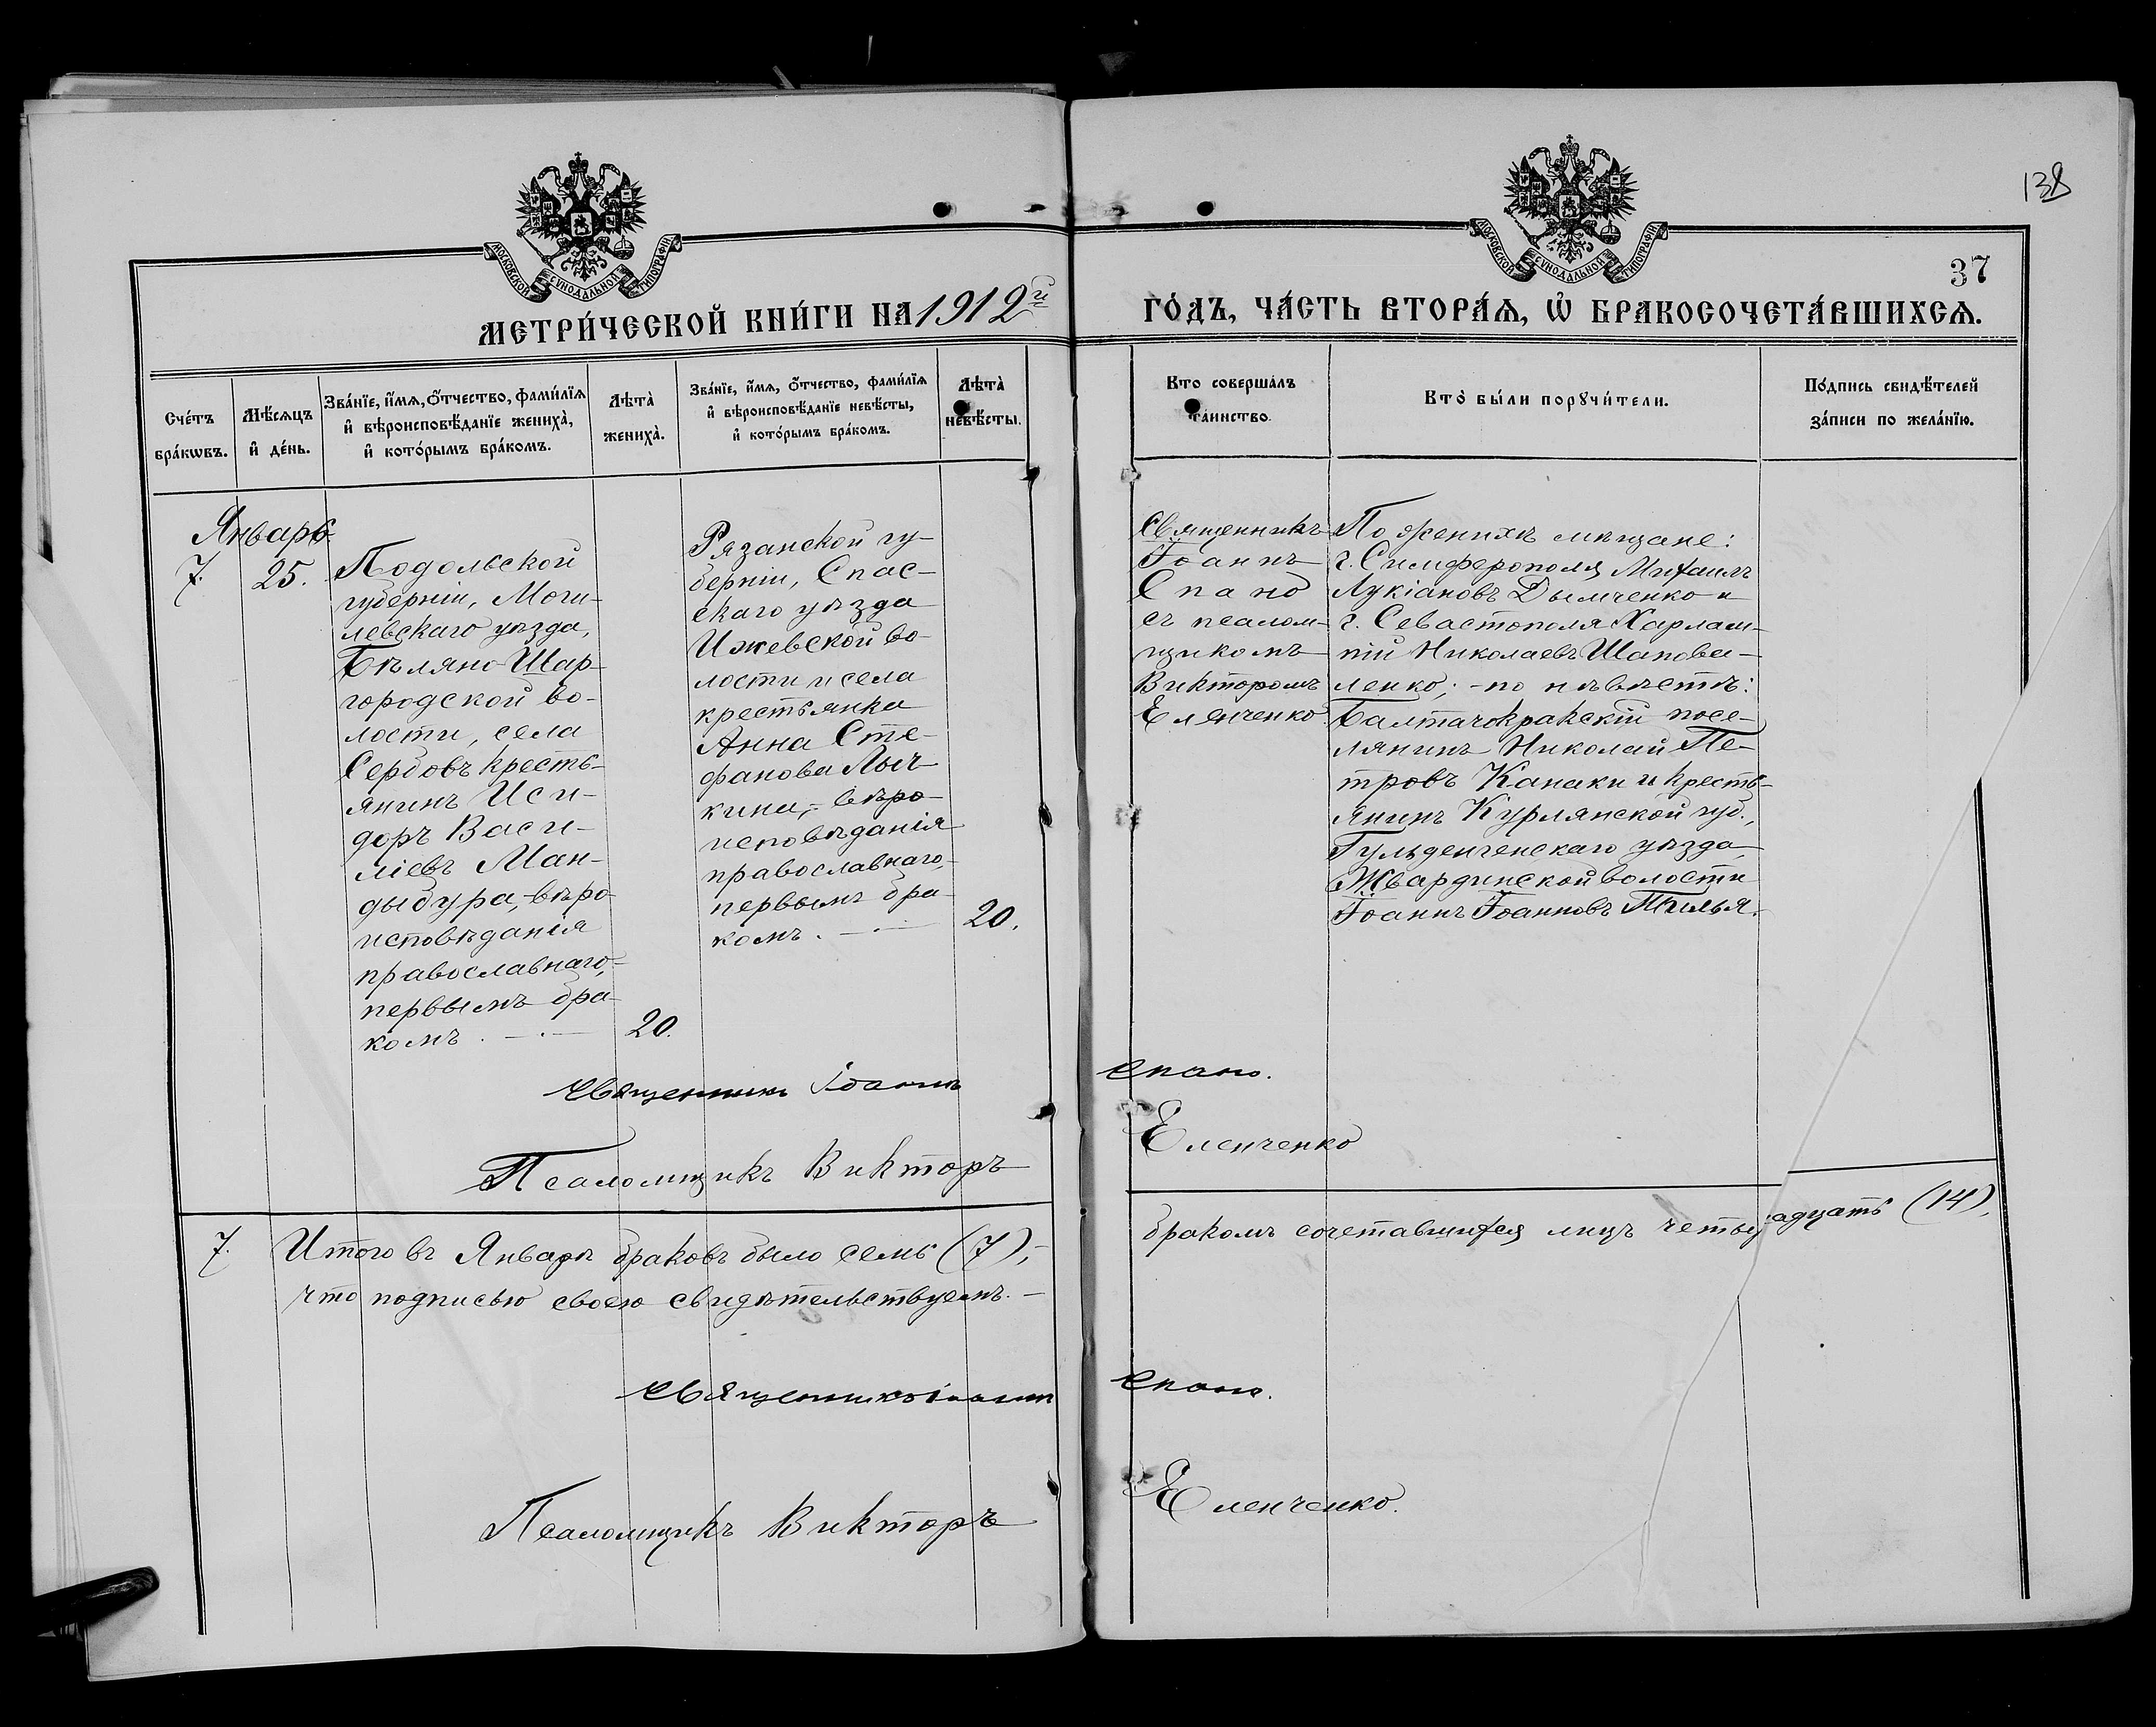 138
37
МОСКОВСКОЙ СѴНОДАЛЬНОЙ ТИПОГРАФІИ
МОСКОВСКОЙ СѴНОДАЛЬНОЙ ТИПОГРАФІИ
МЕТРИ́ЧЕСКОЙ КНИ́ГИ НА 1912й
ГО́ДЪ, ЧА́СТЬ ВТОРА́Ѧ, Ѡ҆ БРАКОСОЧЕТА́ВШИХСѦ.
Сче́тъ
бра́кѡвъ.
Мѣ́сяцъ
и҆ де́нь.
Зва́нїе, и҆́мѧ, ѻ҆́тчество, фами́лїѧ
и҆ вѣроисповѣ́данїе жениха̀,
и҆ кото́рымъ бра́комъ.
Лѣта̀
жениха̀.
Зва́нїе, и҆́мѧ, ѻ҆́тчество, фами́лїѧ
и҆ вѣроисповѣ́данїе невѣ́сты,
и҆ кото́рымъ бра́комъ.
Лѣта̀
невѣ́сты.
Кто̀ соверша́лъ
та́инство.
Кто̀ бы́ли порꙋчи́тели.
По́дпись свидѣ́телей
за́писи по жела́нїю.
Январь.
7.
25.
Подольской
губерніи, Моги-
левскаго уѣзда,
Бѣляно-Шар-
городской во-
лости, села
Сербовъ кресть-
янинъ Иси-
доръ Васи-
ліевъ Ман-
дыбура, - вѣро-
исповѣданія
православнаго,-
первымъ бра-
комъ. —.—
20.
Рязанской гу-
берніи, Спас-
скаго уѣзда
Ижевской во-
лости и села
крестьянка
Анна Сте-
фанова Лыч-
кина, - вѣро-
исповѣданія
православнаго,-
первымъ бра-
комъ. —.—
20.
Священникъ
Іоаннъ
Спано
съ псалом-
щикомъ
Викторомъ
Еленченко.
По женихѣ мѣщане:
г. Симферополя Михаилъ
Лукіановъ Дымченко и
г. Севастополя Харлам-
пій Николаевъ Шапова-
ленко; - по невѣстѣ:
Балтачокракскій посе-
лянинъ Николай Пе-
тровъ Канаки и кресть-
янинъ Курлянской губ.,
Гульденченскаго уѣзда,
Жвардинской волости
Іоаннъ Іоанновъ Тилья.
Священникъ Іоаннъ Спано.
Псаломщикъ Викторъ Еленченко
7. Итого въ Январѣ браковъ было семь (7), - бракомъ сочетавшихся лицъ четыр адцать (14),
что подписью своею свидѣтельствуемъ. —
Священникъ Іоаннъ Спано.
Псаломщикъ Викторъ Еленченко.